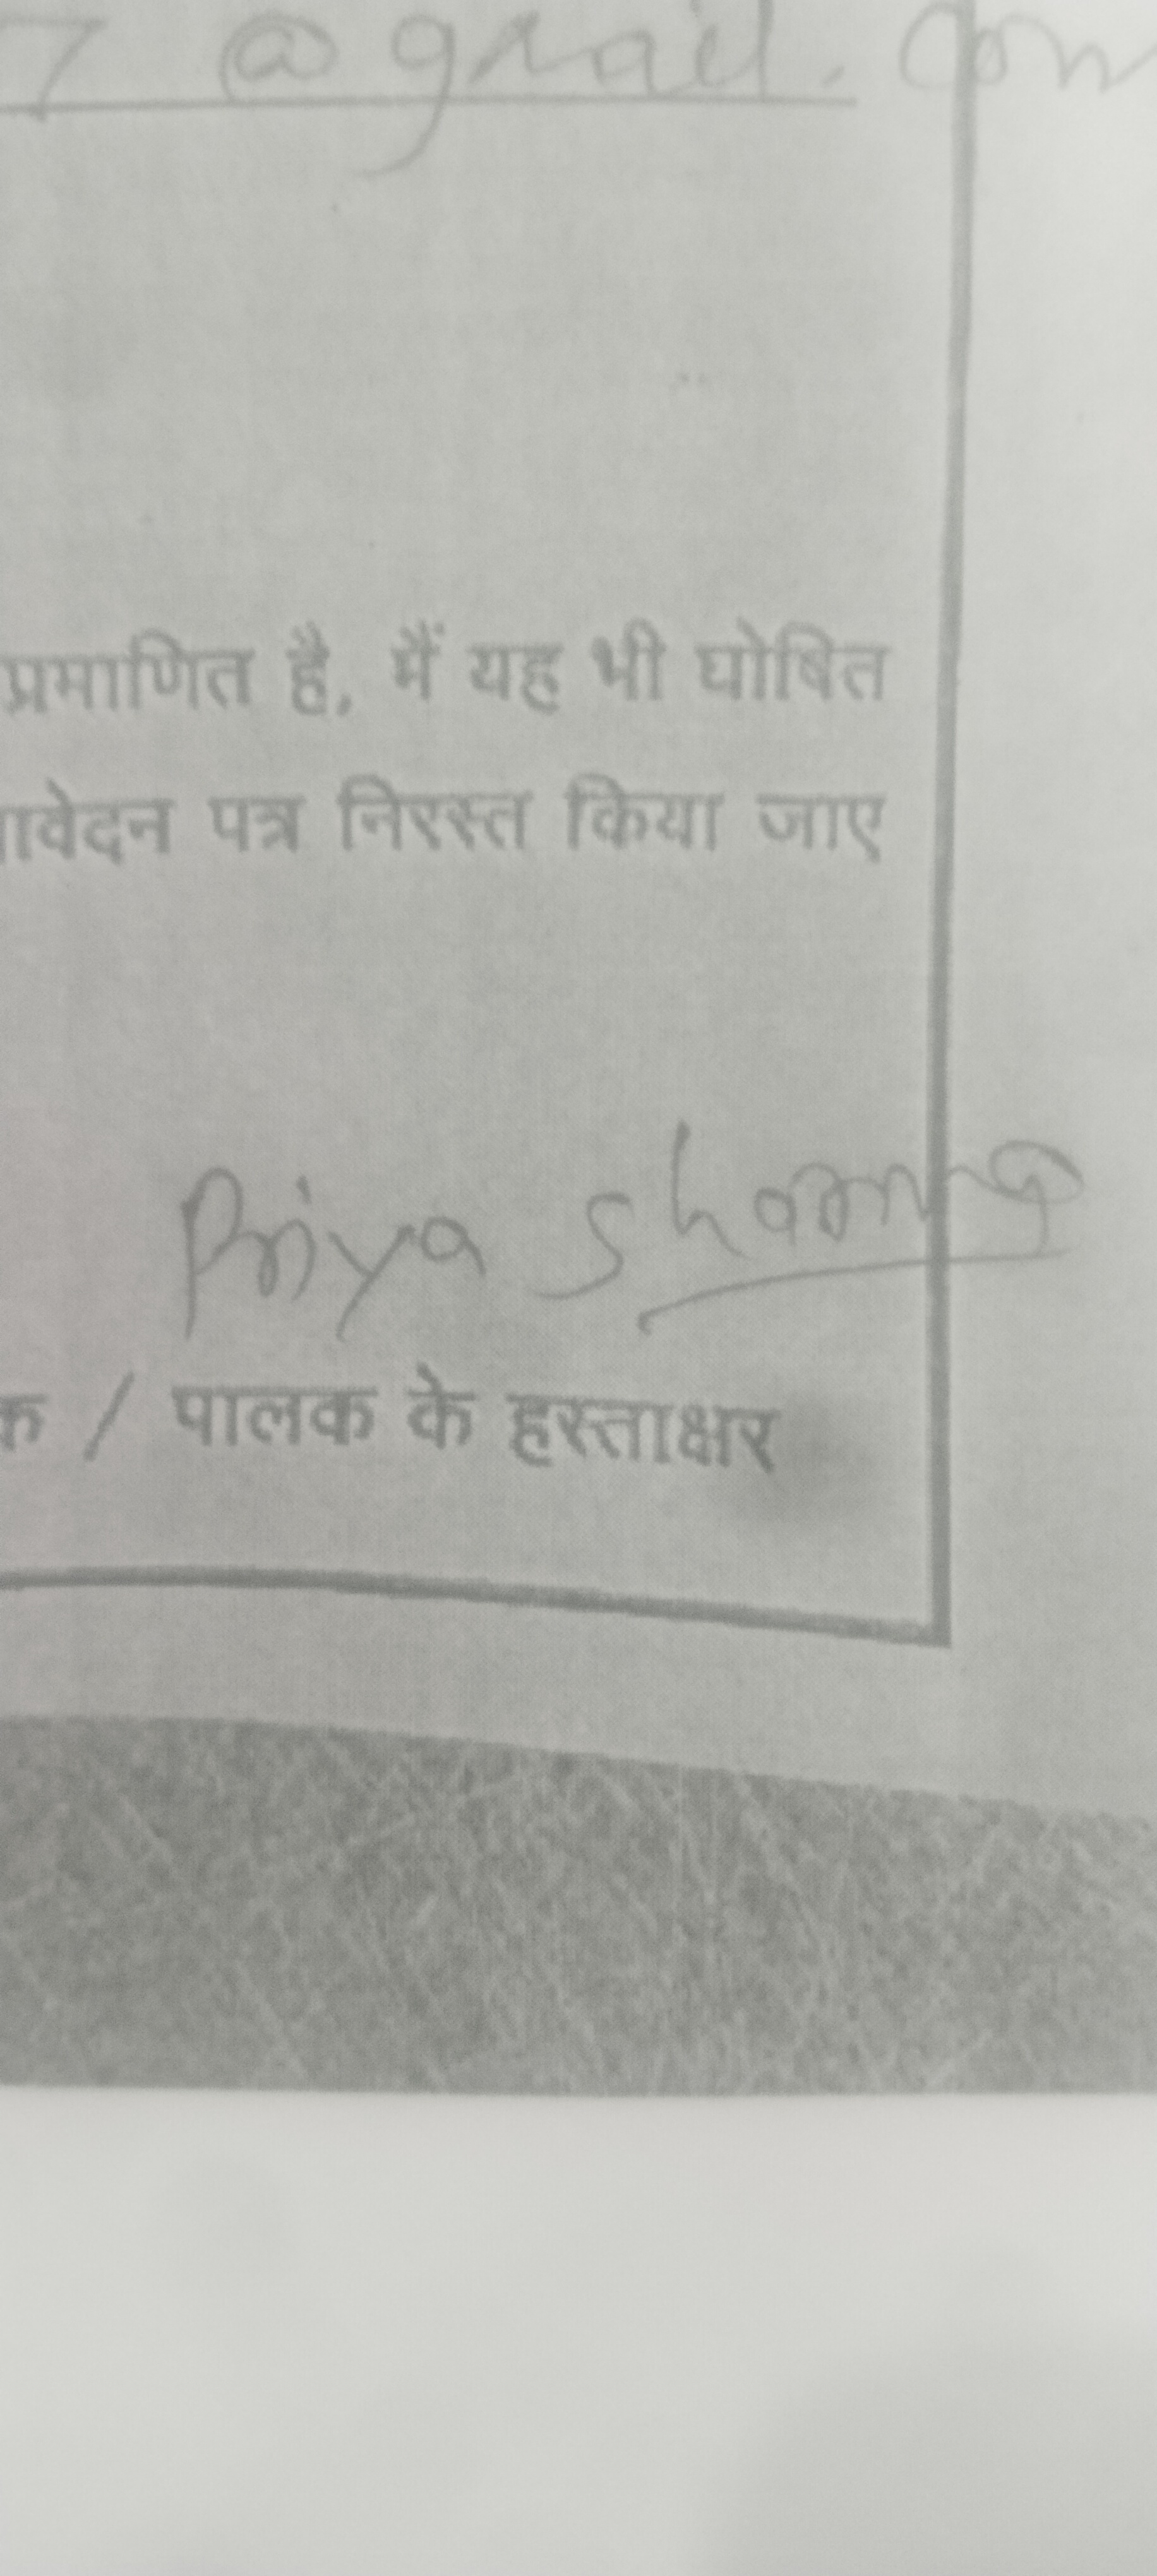 7 @gmail.com
प्रमाणित है, मैं यह भी घोषित
ावेदन पत्र निरस्त किया जाए
Priya Sharma
क / पालक के हस्ताक्षर